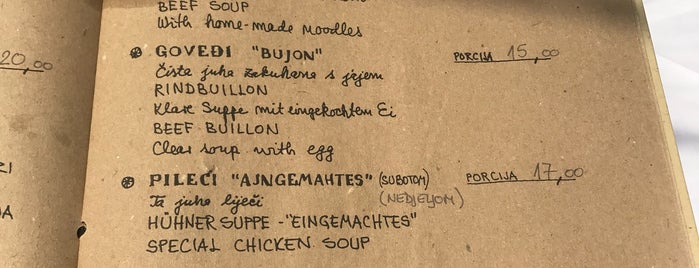 BEEF SOUP
With home-made noodles
20,00
GOVEĐI "BUJON" PORCIJA 15,00
Čista juha zakuhana s jajem
RINDBUILLON
Klare Suppe mit eingekochtem Ei
BEEF BUILLON
Clear soup with egg
PILEĆI "AJNGEMAHTES" (SUBOTOM) PORCIJA 17,00
Ta juha liječi (NEDJELJOM)
HÜHNER SUPPE - "EINGEMACHTES"
SPECIAL CHICKEN SOUP